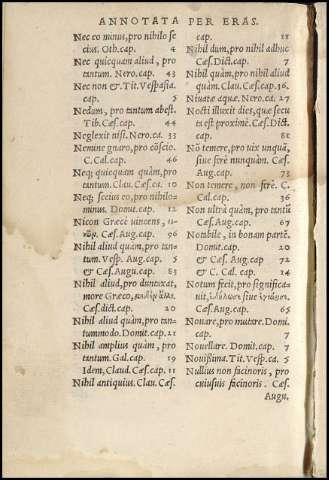 ANNOTATA PER ERAS.
Nec eo minus, pro nihilo se
cius. Oth. cap. 4
Nec quicquam aliud, pro
tantum. Nero. cap. 43
Nec non & . Tit. Vespasia.
cap. 5
Nedum, pro tantum abest.
Tib. Cæs. cap. 44
Neglexit nisi. Nero. ca. 33
Nemine gnaro, pro cōscio.
C. Cal. cap. 46
Neq; quicquam quàm, pro
tantum. Clau. Cæs. ca. 10
Neq; secius eo, pro nihilo-
minus. Domit. cap. 12
Nicon Græce uincens, ι-
Cæs. Aug. cap. 96
Nihil aliud quàm, pro tan-
tum. Vesp. Aug. cap. 5
& Cæs. Augu. cap. 83
Nihil aliud, pro duntaxat,
more Græco,
Cæs. dict. cap. 20
Nihil aliud quàm, pro tan-
tummodo. Domit. cap. 21
Nihil amplius quàm, pro
tantum. Gal. cap. 19
Idem, Claud. Cæs. cap. 11
Nihil antiquius. Clau. Cæs.
cap. 11
Nihil dum, pro nihil adhuc
Cæs. Dict. cap. 7
Nihil quàm, pro nihil aliud
quàm. Clau. Cæs. cap. 36.
Niuatæ aquæ. Nero. ca. 27
Nocti illuxit dies, quæ secu
ta est proximè. Cæs. Dict.
cap. 81
Nō temere, pro uix unquā,
siue ferè nunquàm. Cæs.
Aug. cap. 73
Non temere, non ferè. C.
Cal. cap. 36
Non ultrà quàm, pro tantū
Cæs. Aug. cap. 67
Notabile, in bonam partē.
Domit. cap. 20
& Cæs. Aug. cap. 72
& C. Cal. cap. 14
Notum fecit, pro significa-
uit, siue
Cæs. Aug. cap. 65
Nouare, pro mutare. Domi.
cap. 7
Nouellare. Domit. cap. 7
Nouissima. Tit. Vesp. ca. 5
Nullius non facinoris, pro
cuiusuis facinoris. Cæs.
Augu.